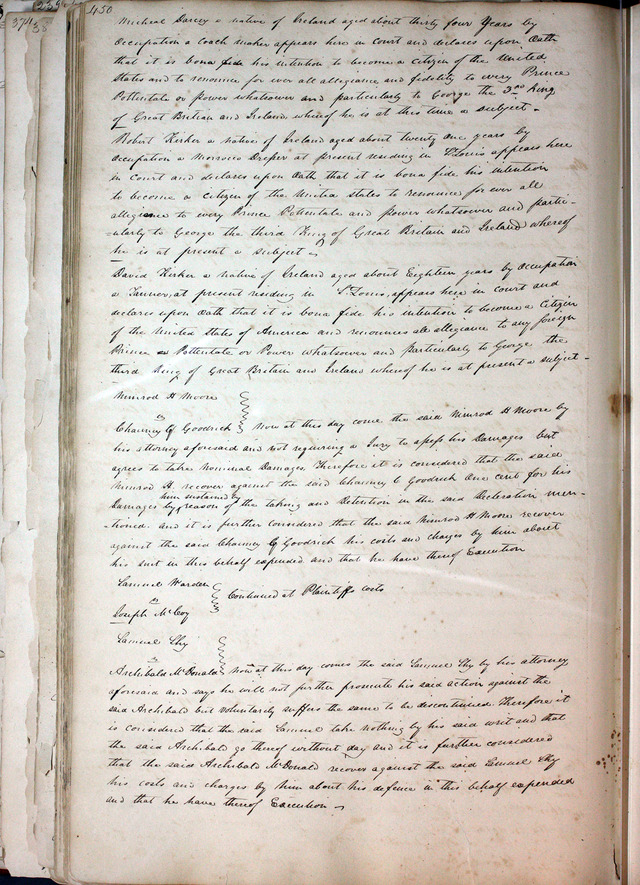 450
Micheal Darcey a native of Ireland aged about thirty four Years by
Occupation a Coach maker appears here in Court and declares upon Oath
that it is bona fide his intention to become a citizen of the United
States and to renounce for ever all allegiance and fidelity to every Prince
Pottentate or power whatsoever and particularly to George the 3rd King
of Great Britian and Ireland whereof he is at this time a subject -
Robert Kirker a native of Ireland aged about twenty one years by
Occupation a Morocco Dresser at present residing in St Louis appears here
in Court and declares upon Oath that it is bona fide his intention
to become a Citizen of the United States to renounce for ever all
allegiance to every Prince Pottentate and power whatsoever and partic-
-ularly to George the third King of Great Britain and Ireland whereof
he is at present a Subject
David Kirker a native of Ireland aged about Eighteen years by Occupation
a Tannor, at present residing in St Louis, appears here in Court and
declares upon Oath that it is bona fide his intention to become a Citizen
of the United States of America and renounces all allegiance to any foreign
Prince Pottentate or Power whatsoever and Particularly to George the
third King of Great Britain and Ireland whereof he is at present a subject -
Nimrod H Moore
vs
Chauncy G Goodrich Now at this day come the said Nimrod H Moore by
his attorney aforesaid and not requiring a Jury to assess his Damages but
agrees to take Nominal Damages, Therefore it is considered that the said
Nimrod H. recover against the said Chauncy G Goodrich One cent for his
him sustained
Damages by reason of the taking and Detention in the said Decleration men-
-tioned. and it is further considered that the said Nimrod H Moore recover
against the said Chauncy G Goodrich his costs and charges by him about
his suit in this behalf expended and that he have thereof Execution
Samuel Warden
vs
Continued at Plaintiffs costs
Joseph McCoy
Samuel Shy
vs
Archibald McDonald Now at this day comes the said Samuel Shy by his attorney
aforesaid and says he will not further promote his said action against the
said Archibald but voluntarily suffers the same to be discontinued. Therefore it
is considered that the said Samuel take nothing by his said writ and that
the said Archibald go thereof without day and it is further considered
that the said Archibald McDonald recover against the said Samuel Shy
his costs and charges by him about his defence in this behalf expended
and that he have thereof Execution